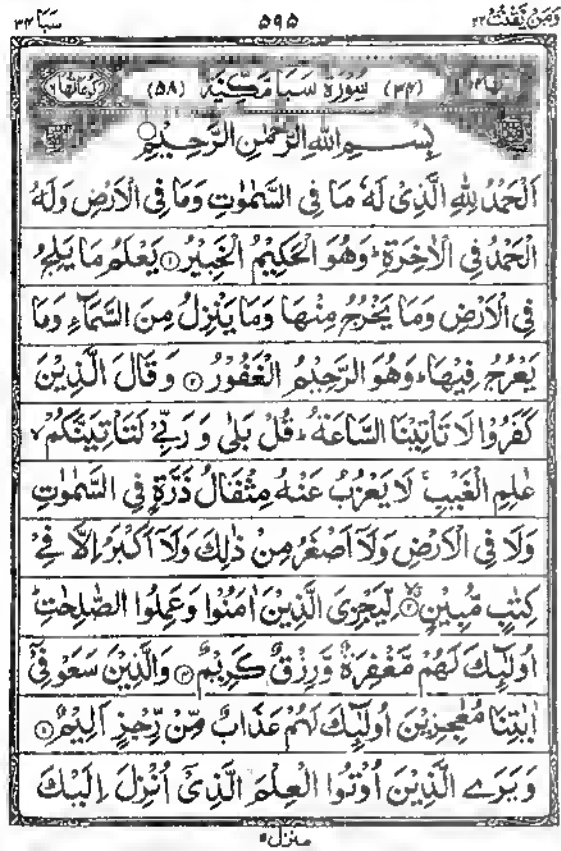 وَمَنْ يَّقْنُتْ ۲۲ ۵۹۵ سَبَا ۳۴
اٰیَاتُهَا ۵۴ (۳۴) سُوْرَةُ سَبَاٍ مَّكِّيَّةٌ (۵۸) رُكُوْعَاتُهَا ۶
بِسْمِ اللّٰهِ الرَّحْمٰنِ الرَّحِیْمِ
اَلْحَمْدُ لِلّٰهِ الَّذِیْ لَهٗ مَا فِی السَّمٰوٰتِ وَمَا فِی الْاَرْضِ وَلَهُ
الْحَمْدُ فِی الْاٰخِرَةِ ؕ وَهُوَ الْحَكِیْمُ الْخَبِیْرُ ۝۱ یَعْلَمُ مَا یَلِجُ
فِی الْاَرْضِ وَمَا یَخْرُجُ مِنْهَا وَمَا یَنْزِلُ مِنَ السَّمَآءِ وَمَا
یَعْرُجُ فِیْهَا ؕ وَهُوَ الرَّحِیْمُ الْغَفُوْرُ ۝۲ وَقَالَ الَّذِیْنَ
كَفَرُوْا لَا تَاْتِیْنَا السَّاعَةُ ؕ قُلْ بَلٰی وَرَبِّیْ لَتَاْتِیَنَّكُمْ ۙ
عٰلِمِ الْغَیْبِ ۚ لَا یَعْزُبُ عَنْهُ مِثْقَالُ ذَرَّةٍ فِی السَّمٰوٰتِ
وَلَا فِی الْاَرْضِ وَلَاۤ اَصْغَرُ مِنْ ذٰلِكَ وَلَاۤ اَكْبَرُ اِلَّا فِیْ
كِتٰبٍ مُّبِیْنٍ ۝۳ لِّیَجْزِیَ الَّذِیْنَ اٰمَنُوْا وَعَمِلُوا الصّٰلِحٰتِ ؕ
اُولٰٓىِٕكَ لَهُمْ مَّغْفِرَةٌ وَّرِزْقٌ كَرِیْمٌ ۝۴ وَالَّذِیْنَ سَعَوْ فِیْۤ
اٰیٰتِنَا مُعٰجِزِیْنَ اُولٰٓىِٕكَ لَهُمْ عَذَابٌ مِّنْ رِّجْزٍ اَلِیْمٌ ۝۵
وَیَرَی الَّذِیْنَ اُوْتُوا الْعِلْمَ الَّذِیْۤ اُنْزِلَ اِلَیْكَ
منزل ۵